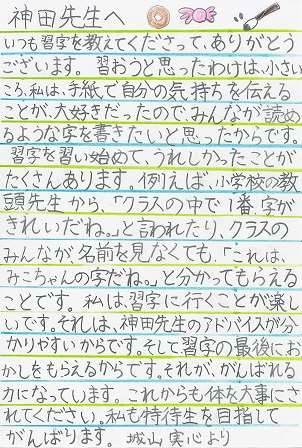 神田先生へ
いつも習字を教えてくださって、ありがとう
ございます。習おうと思ったわけは、小さい
ころ、私は、手紙で自分の気持ちを伝える
ことが、大好きだったので、みんなが読め
るような字を書きたいと思ったからです。
習字を習い始めて、うれしかったことが
たくさんあります。例えば、小学校の教
頭先生から、「クラスの中で1番、字が
きれいだね。」と言われたり、クラスの
みんなが、名前を見なくても、「これは、
みこちゃんの字だね。」と分かってもらえる
ことです。私は習字に行くことが楽し
いです。それは、神田先生のアドバイスが分
かりやすいからです。そして習字の最後にお
かしをもらえるからです。それが、がんばれる
力になっています。これからも体を大事にさ
れてください。私も特待生を目指して
がんばります。城山実心より